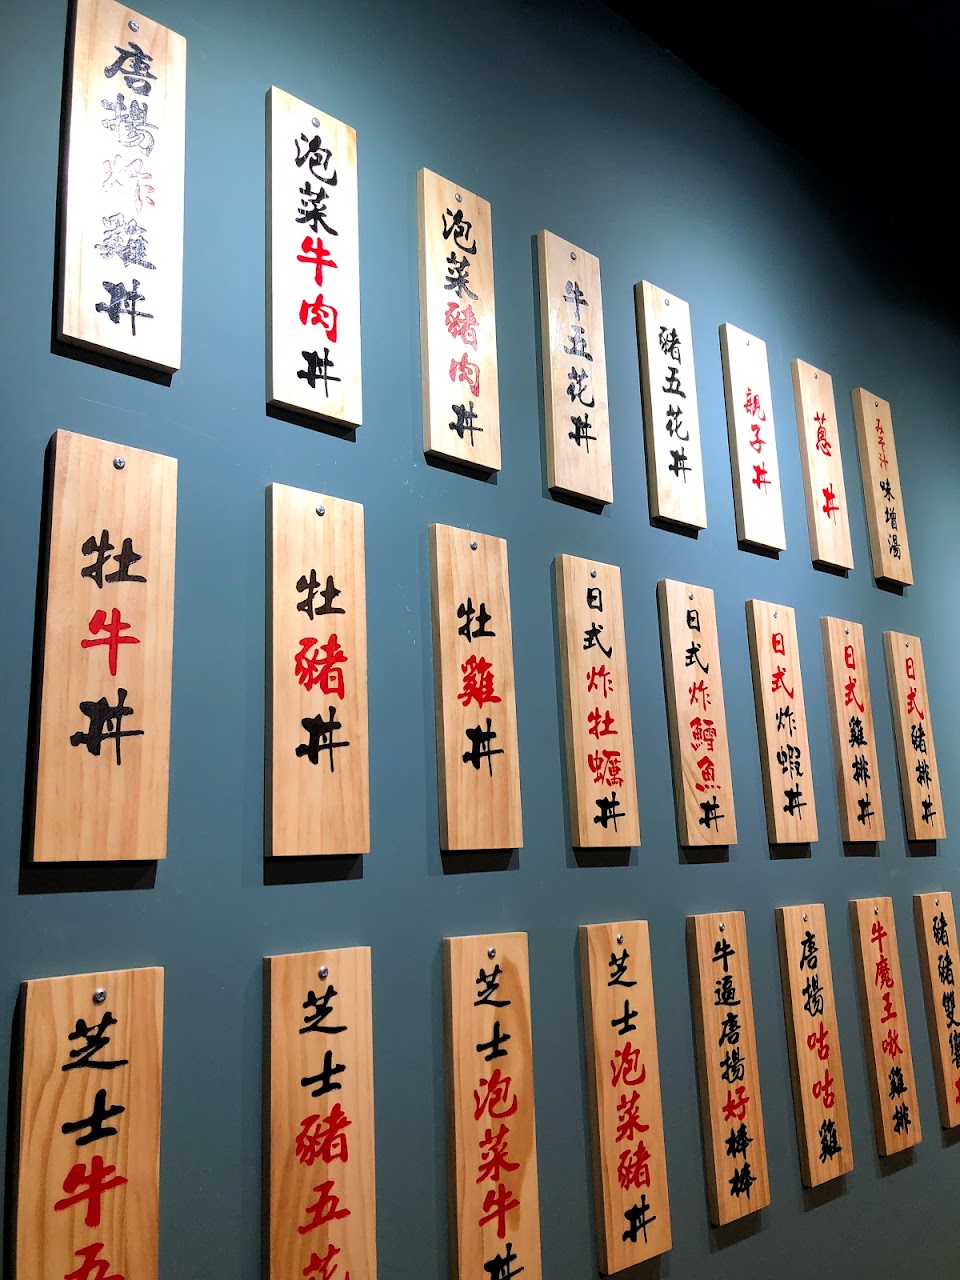 唐揚炸雞丼
泡菜牛肉丼
泡菜豬肉丼
牛五花丼
豬五花丼
親子丼
蔥丼
みそ汁味增湯
牡牛丼
牡豬丼
牡雞丼
日式炸牡蠣丼
日式炸鱈魚丼
日式炸蝦丼
日式雞排丼
日式豬排丼
芝士牛五
芝士豬五花
芝士泡菜牛丼
芝士泡菜豬丼
牛逼唐揚好棒棒
唐揚咕咕雞
牛魔王啾雞排
豬豬雙響